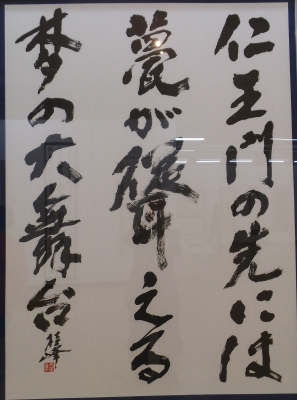 仁王門の先には
甍が聳える
夢の大舞台